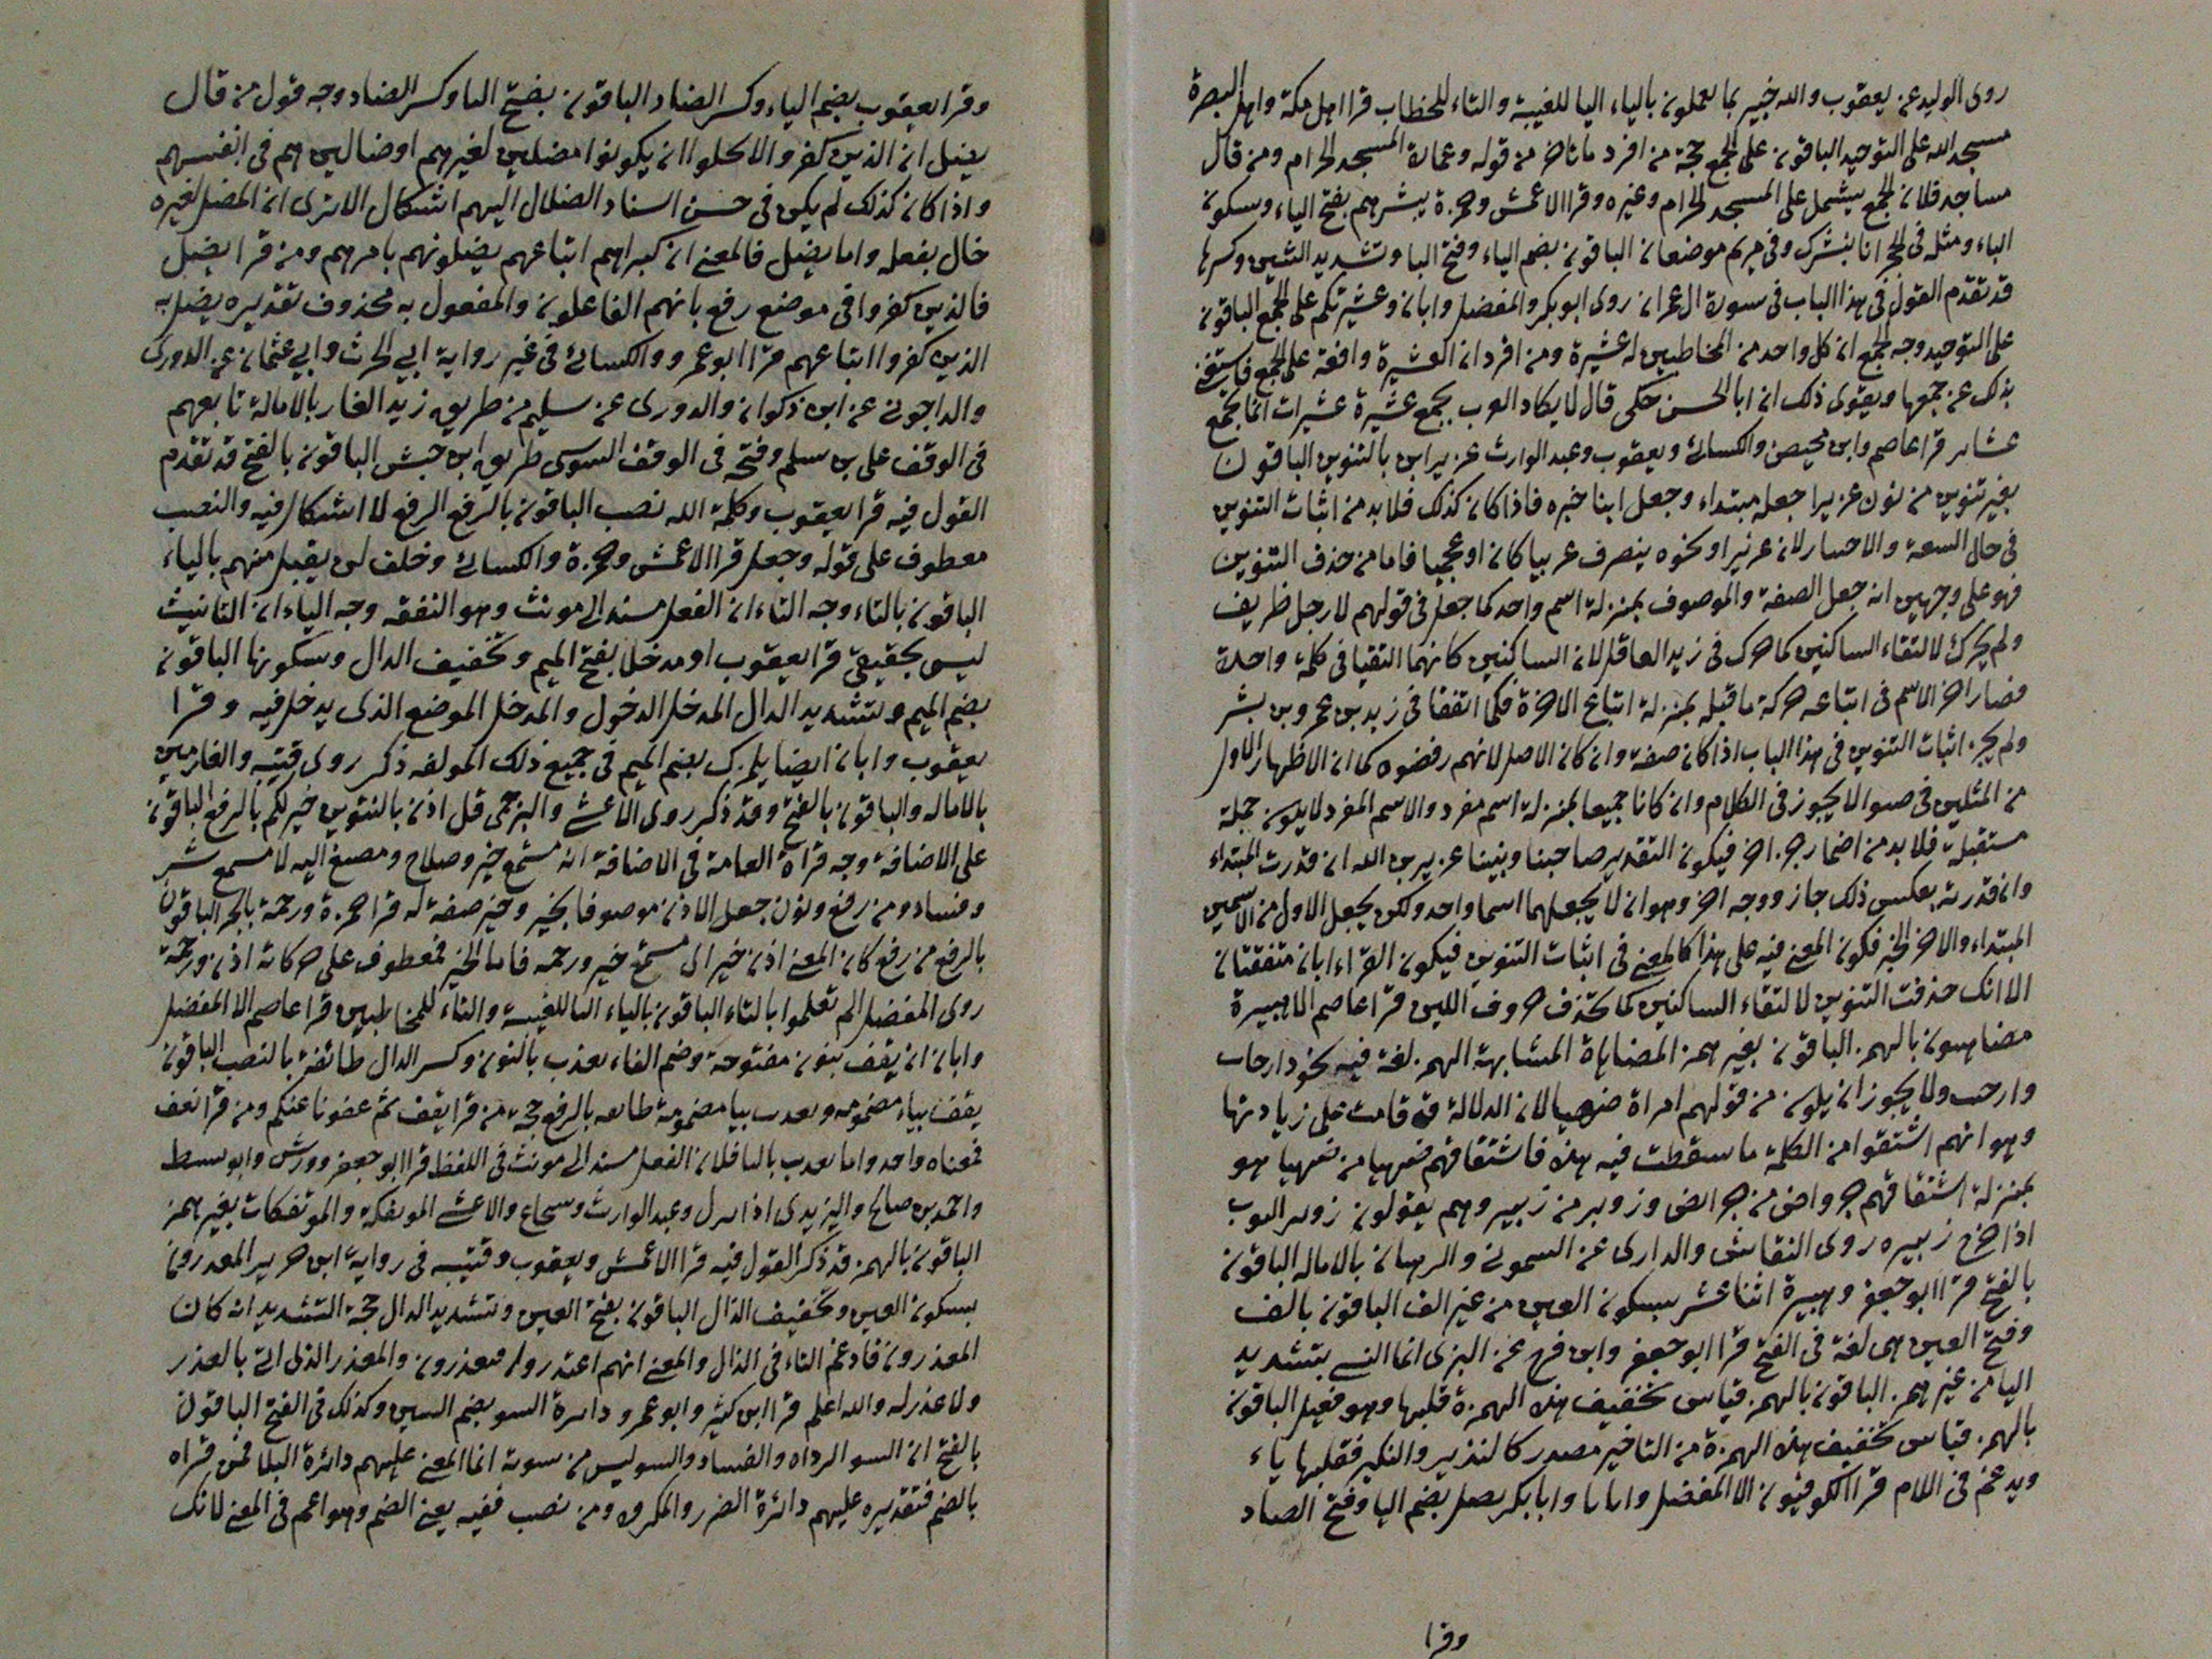 روى الوليد عن يعقوب والله خبير بما يعملون بالياء اليا للغيبة والتاء للخطاب قرا اهل مكة واهل البصرة
مسجد الله على التوحيد الباقون على الجمع حجة من افرد ما تاخر من قوله وعمارة المسجد الحرام ومن قال
مساجد فلان الجمع يشمل على المسجد الحرام وغيره وقرا الاعمش وحمزة يبشرهم بفتح الياء وسكون
الباء ومثله في الحجر انا نبشرك وفي مريم موضعان الباقون بضم الياء وفتح البا وتشديد الشين وكسرها
قد تقدم القول في هذا الباب في سورة ال عمران روى ابو بكر والمفضل وابان وعشيرتكم على الجمع الباقون
على التوحيد وجه الجمع ان كل واحد من المخاطبين له عشيرة ومن افرد ان العشيرة وافقة على الجمع فاستغنى
بذلك عن جمعها ويقوى ذلك ان ابا الحسن حكى قال لا يكاد العرب يجمع عشيرة عشيرات انما يجمع
عشاير قرا عاصم وابن محيصن والكسائى ويعقوب وعبد الوارث عزير ابن بالتنوين الباقون
بغير تنوين من نون عزيرا جعله مبتداء وجعل ابنا خبره فاذا كان كذلك فلا بد من اثبات التنوين
في حال السعة والاحسار لان عزيرا ونحوه ينصرف عربيا كان او عجميا فاما من حذف التنوين
فهو على وجهين انه جعل الصفة والموصوف بمنزلة اسم واحد كما جعل في قولهم لا رجل ظريف
ولم يحرك لالتقاء الساكنين كما حرك في زيد العاقل لان الساكنين كانهما التقيا في كلمة واحدة
فصار اخر الاسم في اتباعه حركة ما قبله بمنزلة اتباع الاخرة فكما اتفقا في زيد بن عمرو بن بشر
ولم يجز اثبات التنوين في هذا الباب اذا كان صفة وان كان الاصل لانهم رفضوه كما ان الاظهار الاول
من المثلين في ضوا لا يجوز في الكلام وان كانا جميعا بمنزلة اسم مفرد والاسم المفرد لا يكون جملة
مستقبلة فلا بد من اضمار جزء اخر فيكون التقدير صاحبنا ونبينا عزير بن الله ان قدرت المبتداء
وان قدرته بعكس ذلك جاز ووجه اخر وهو ان لا يجعلهما اسما واحد ولكن يجعل الاول من الاسمين
المبتداء والاخر الخبر فيكون المعنى فيه على هذا كالمعنى في اثبات التنوين فيكون القراءاتان متفقتان
الا انك حذفت التنوين لالتقاء الساكنين كما تحذف حروف اللين قرا عاصم الا هبيرة
مضاهون بالهمز الباقون بغير همز المضاهاة المشابهة الهمز لغة فيه نحو ارجات
وارجب ولا يجوز ان يكون من قولهم امراة ضهيا لان الدلالة قد قامت على زيادتها
وهو انهم اشتقوا من الكلمة ما سقطت فيه هذه فاشتقاقهم ضهيا من ضهيا هو
بمنزلة اشتقاقهم جرواض من جرائض وزوبر من زبير وهم يقولون زوبر الثوب
اذا خرج زبيره روى النقاش والدارى عن السموني والرهبان بالاماله الباقون
بالفتح قرا ابو جعفر وهبيرة اثنا عشر بسكون العين من غير الف الباقون بالف
وفتح العين هى لغة في الفتح قرا ابو جعفر وابن فرح عن البزى انما النسى بتشديد
اليا من غير همز الباقون بالهمز قياس تخفيف هذه الهمزة قلبها وهو فعيل الباقون
بالهمز قياس تخفيف هذه الهمزة من التاخير مصدر كالنذير والنكير فقلبها ياء
ويدغم في اللام قرا الكوفيون الا المفضل وابانا وابا بكر يضل بضم اليا وفتح الضاد
وقرا
وقرا يعقوب بضم الياء وكسر الضاد الباقون بفتح اليا وكسر الضاد وجه قول من قال
يضل ان الذين كفروا لا يخلوا ان يكونوا مضلين لغيرهم او ضالين هم في انفسهم
واذا كان كذلك لم يكن في حسن اسناد الضلال اليهم اشكال الا ترى ان المضل لغيره
ضال بفعله واما يضل فالمعنى ان كبراهم اتباعهم يضلونهم بامرهم ومن قرا يضل
فالذين كفروا في موضع رفع بانهم الفاعلون والمفعول به محذوف تقديره يضل به
الذين كفروا اتباعهم قرا ابو عمرو والكسائى في غير رواية ابي الحرث وابي عثمان عن الدورى
والداجونى عن ابن ذكوان والدورى عن سليم من طريق زيد الغار بالامالة تابعهم
في الوقف على بن سلم وفتحه في الوقف السوسى طريق ابن حبش الباقون بالفتح قد تقدم
القول فيه قرا يعقوب وكلمة الله نصب الباقون بالرفع الرفع لا اشكال فيه والنصب
معطوف على قوله وجعل قرا الاعمش وحمزة والكسائى وخلف لن يقبل منهم بالياء
الباقون بالتاء وجه التاء ان الفعل مسند الى مونث وهو النفقه وجه الياء ان التانيث
ليس بحقيقى قرا يعقوب او مدخلا بفتح الميم وتخفيف الدال وسكونها الباقون
بضم الميم وتشديد الدال المدخل الدخول والمدخل الموضع الذى يدخل فيه وقرا
يعقوب وابان ايضا يلمزك بضم الميم في جميع ذلك المولفه ذكر روى قتيبه والغارمين
بالاماله والباقون بالفتح وقد ذكر روى الاعشى والبرجمى قل اذن بالتنوين خير لكم بالرفع الباقون
على الاضافة وجه قراة العامة في الاضافة انه مستمع خير وصلاح ومصغ اليه لا مسمع شر
وفساد ومن رفع ونون جعل الاذن موصوفا بخير وخير صفة له قرا حمزة ورحمة بالجر الباقون
بالرفع من رفع كان المعنى اذن خير اى مستمع خير ورحمه فاما الخبر فمعطوف على حركاته اذن ورحمة
روى المفضل الم تعلموا بالتاء الباقون بالياء اليا للغيبة والتاء للمخاطبين قرا عاصم الا المفضل
وابان ان يعف بنون مفتوحة وضم الفاء نعذب بالنون وكسر الدال طائفة بالنصب الباقون
يعف بياء مضمومه وتعذب بيا مضمومة طايفه بالرفع حجة من قرا يعف ثم عفونا عنكم ومن قرا نعف
فمعناه واحد واما تعذب بالتا فلان الفعل مسند الى مونث في اللفظ قرا ابو جعفر وورش وابو نشيط
واحمد بن صالح واليزيدى اذا ادرج وعبد الوارث وشجاع والاعشى الموتفكه والموتفكات بغير همز
الباقون بالهمز قد ذكر القول فيه قرا الاعمش ويعقوب وقتيبه في رواية ابن حرير المعذرون
بسكون العين وتخفيف الذال الباقون بفتح العين وتشديد الدال حجة التشديد انه كان
المعذرون فادغم التاء في الذال والمعنى انهم اعتذروا معذرون والمعذر الذى اتى بالعذر
ولا عذر له والله اعلم قرا ابن كثير وابو عمرو دائرة السو بضم السين وكذلك في الفتح الباقون
بالفتح ان السو الرداه والفساد والسو ليس من سوته انما المعنى عليهم دائرة البلا فمن قراه
بالضم فتقديره عليهم دائرة الضرر والمكروه ومن نصب ففيه يعنى الضم وهو اعم في المعنى لانك